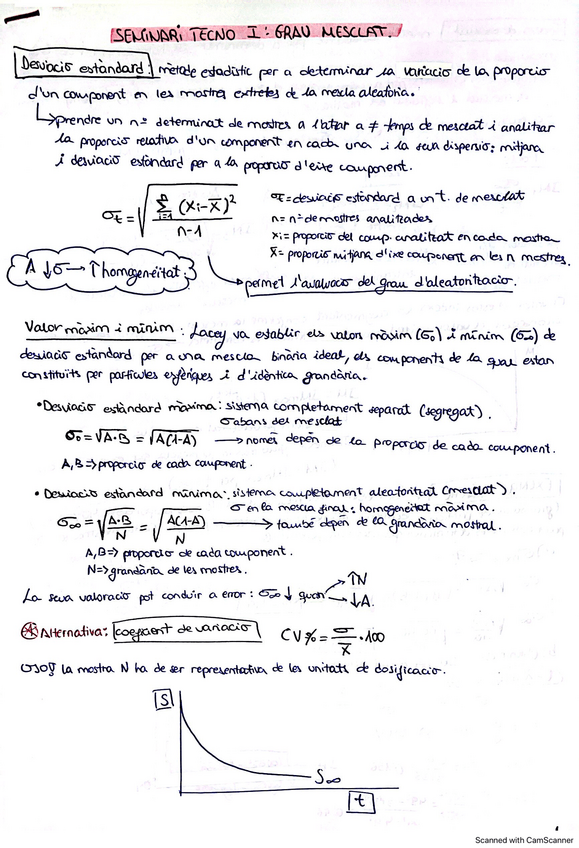 SEMINARI TECNO I: GRAU MESCLAT.
Desviació estàndard: mètode estadístic per a determinar la variació de la proporció
d'un component en les mostres extretes de la mescla aleatòria.
↳prendre un nº determinat de mostres a l'atzar a ≠ temps de mesclat i analitzar
la proporció relativa d'un component en cada una i la seua dispersió: mitjana
i desviació estàndard per a la proporció d'eixe component.
σt = √(Σ i=1 n (xi-x̄)² / n-1)
σt = desviació estàndard a un t. de mesclat
n = nº de mostres analitzades
xi = proporció del comp. analitzat en cada mostra
x̄ = proporció mitjana d'eixe component en les n mostres.
A ↓σ → ↑homogeneïtat.
permet l'avaluació del grau d'aleatorització.
Valor màxim i mínim: Lacey va establir els valors màxim (σ0) i mínim (σ∞) de
desviació estàndard per a una mescla binària ideal, els components de la qual estan
constituïts per partícules esfèriques i d'idèntica grandària.
•Desviació estàndard màxima: sistema completament separat (segregat).
σ abans del mesclat
σ0 = √A·B = √A(1-A) → només depén de la proporció de cada component.
A, B => proporció de cada component.
• Desviació estàndard mínima: sistema completament aleatoritzat (mesclat).
σ en la mescla final: homogeneïtat màxima.
σ∞ = √(A·B / N) = √(A(1-A) / N) → també depén de la grandària mostral.
A, B => proporció de cada component.
N => grandària de les mostres.
La seua valoració pot conduir a error: σ∞ ↓ quan → ↑N
→ ↓A.
Alternativa: coeficient de variació CV% = σ/x̄ · 100
la mostra N ha de ser representativa de les unitats de dosificació.
S
S∞
t
Scanned with CamScanner